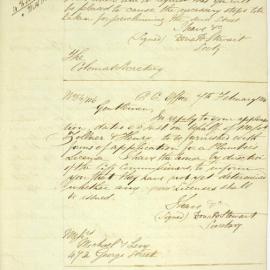 be pleased to cause the necessary steps to be
taken for proclaiming the said
I have &c
(Signed) Stewart
Secty
The
Colonial Secretary
C. C. Office 7th February
Gentlemen,
In reply to your application
dated on behalf of Messrs
Zollner & Henry to be furnished with
forms of application for a Plumbers
License I have the honor, by direction
of the City Commissioners, to inform
you that they have not yet determined
whether any new Licenses shall
be issued.
I have &c
(Signed) Stewart
Secretary
Messrs
Michael & Levy
472 George Street